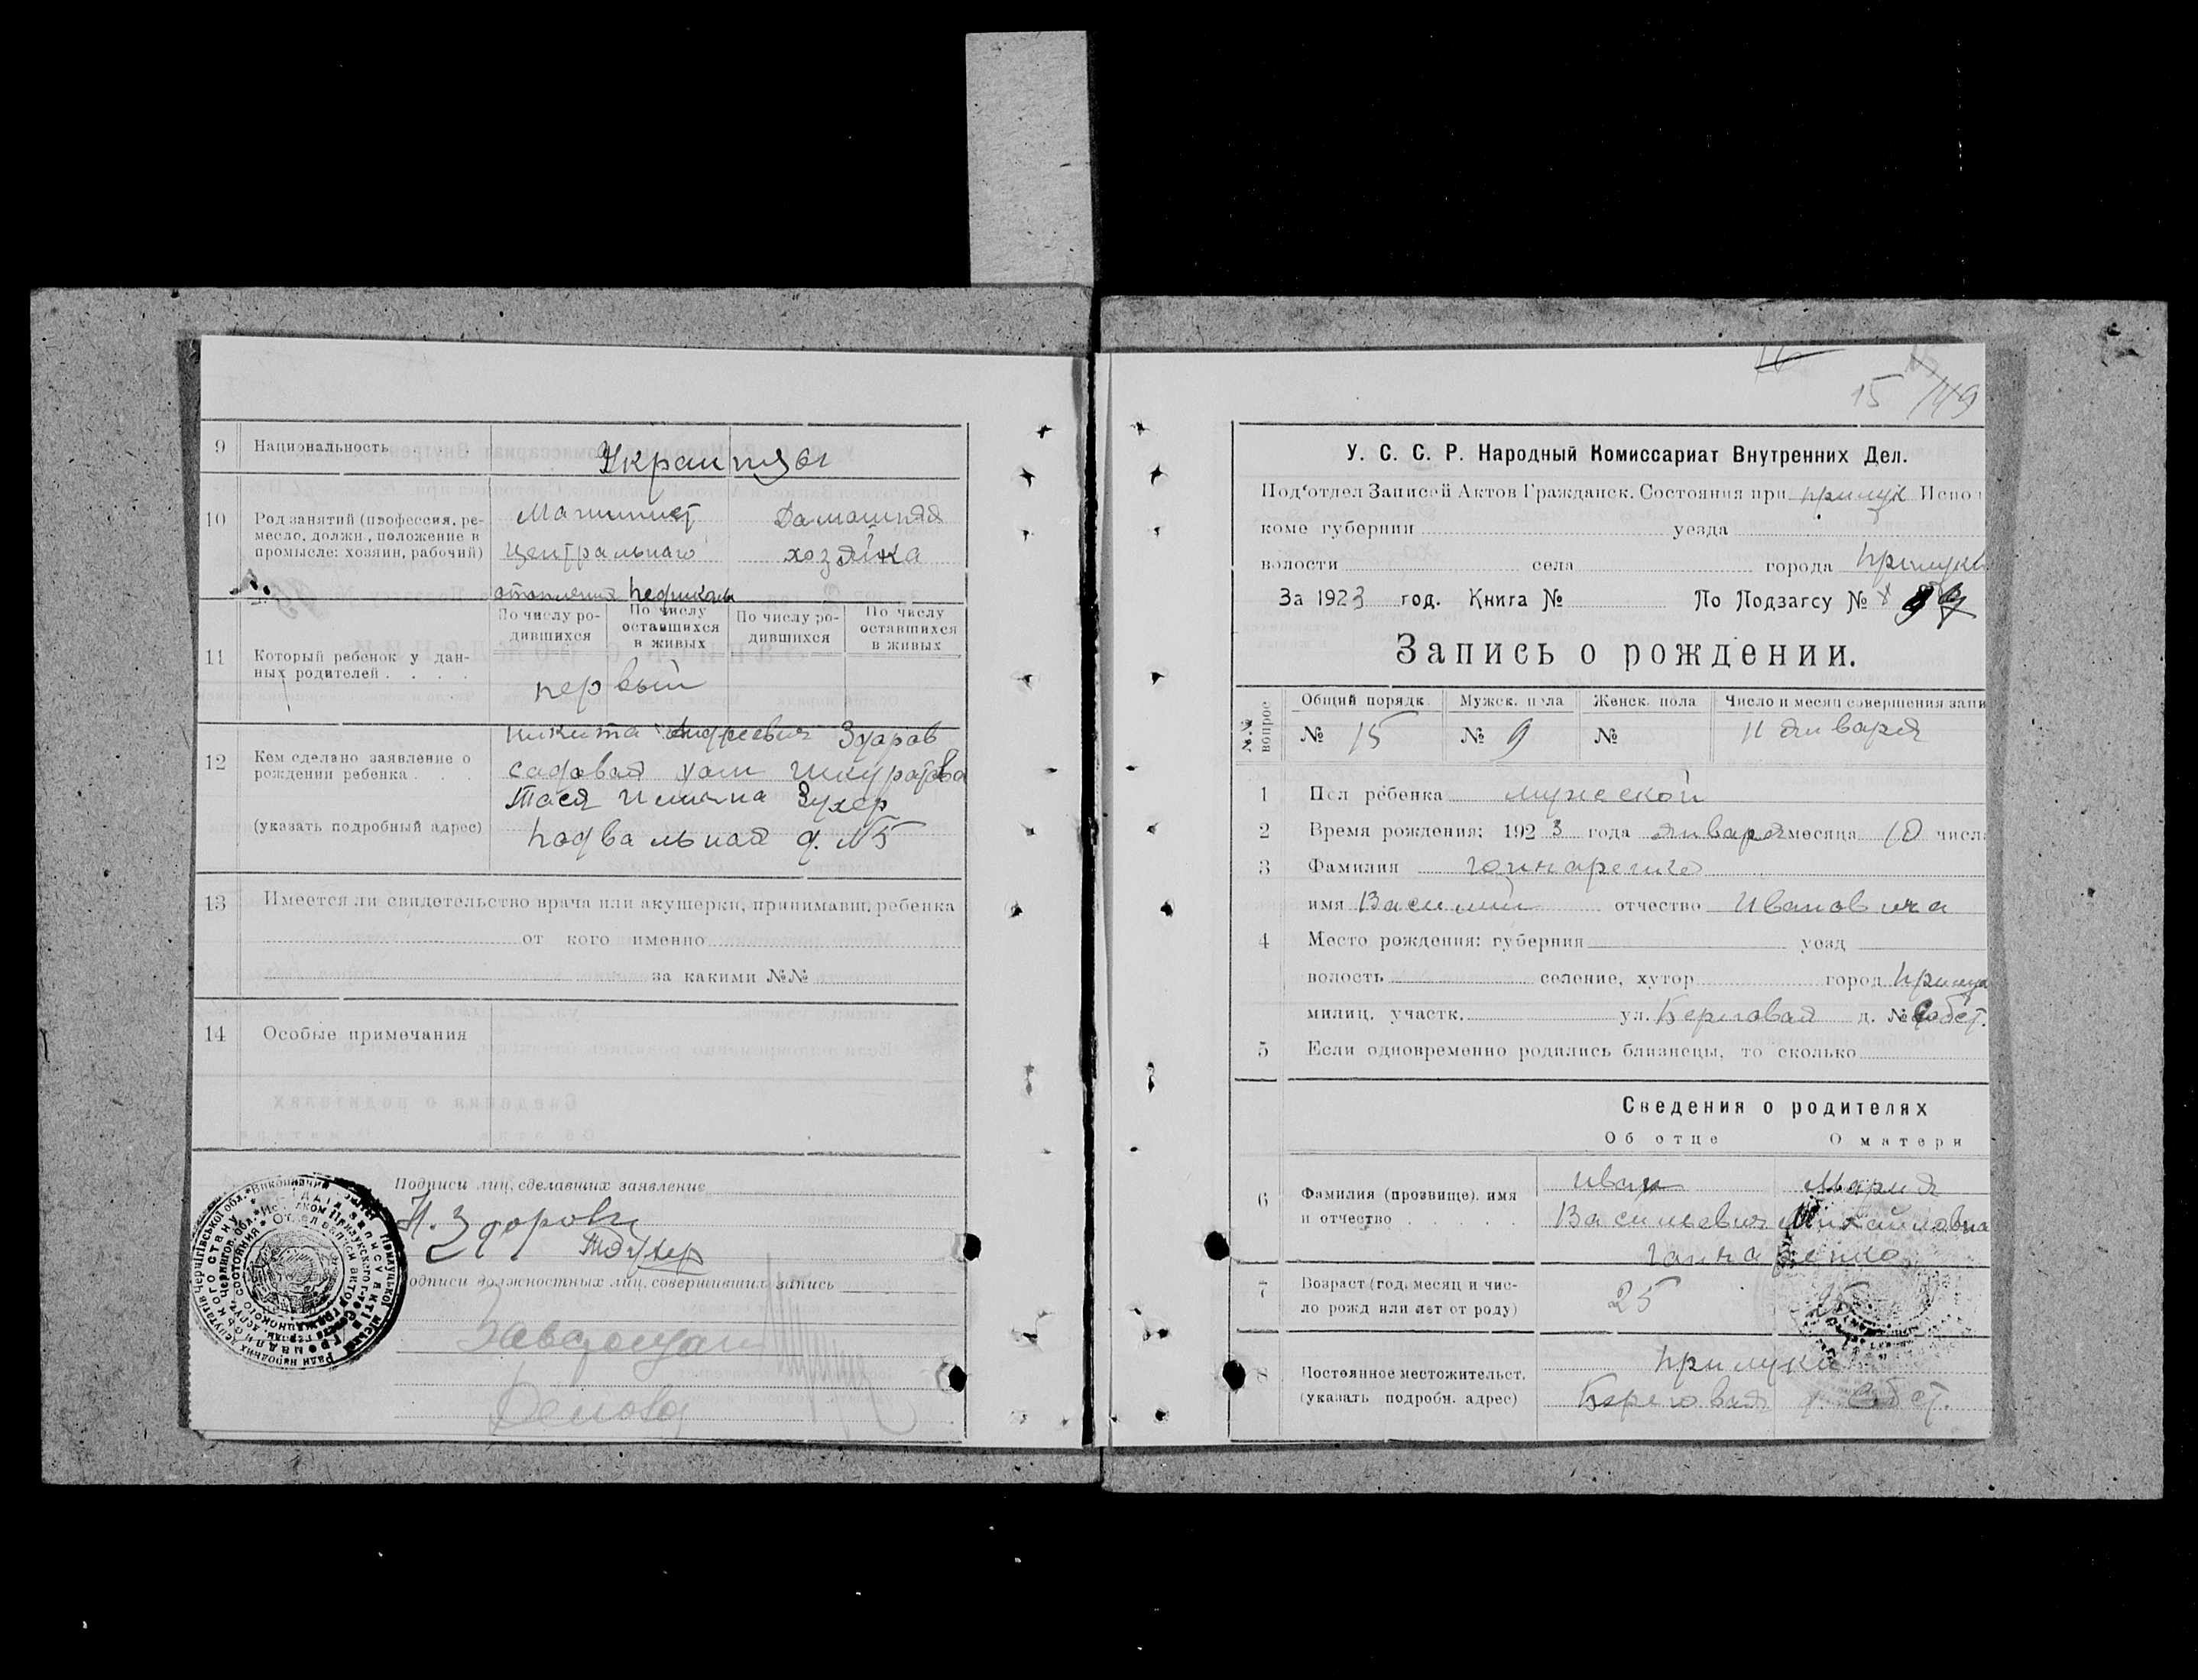 9 Национальность . . . Украинцы
10 Род занятий (профессия, ре-
месло, должн., положение в
промысле: хозяин, рабочий)
Машинист
центрального
отопления педшколы
Дамашняя
хозяйка
По числу ро-
дившихся
По числу
оставшихся
в живых
По числу ро-
дившихся
По числу
оставшихся
в живых
11 Который ребенок у дан-
ных родителей . . . .
первый
12 Кем сделано заявление о
рождении ребенка . . .
(указать подробный адрес)
Никита Андреевич Здоров
садовая дом Шкуратова
Тася Зухер
Подвальная д. №5
13 Имеется ли свидетельство врача или акушерки, принимавш. ребенка
от кого именно
за какими №№
14 Особые примечания
Подписи лиц, сделавших заявление
Н. Здоров
ТЗухер
Подписи должностных лиц, совершивших запись
15/149
У. С. С. Р. Народный Комиссариат Внутренних Дел.
Под'отдел Записей Актов Гражданск. Состояния при прилук Испо
коме губернии уезда
волости села города Прилуки
За 1923 год. Книга № По Подзагсу №
Запись о рождении.
№№ вопрос
Общий порядк. Мужск. пола Женск. пола Число и месяц совершения запи
№ 15 № 9 № 11 января
1 Пол ребенка мужеской
2 Время рождения: 1923 года января месяца 10 числа
3 Фамилия Гончаренко
имя Василий отчество Ивановича
4 Место рождения: губерния уезд
волость селение, хутор город Прилук
милиц. участк. ул. Береговая д. № собст.
5 Если одновременно родились близнецы, то сколько
Сведения о родителях
Об отце О матери
6 Фамилия (прозвище), имя
и отчество . . . . .
Иван Мария
Васильевич Михайловна
Гончаренко
7 Возраст (год, месяц и чис-
ло рожд или лет от роду)
25
8 Постоянное местожительст.
(указать подробн. адрес)
Прилуки
Береговая д. собст.